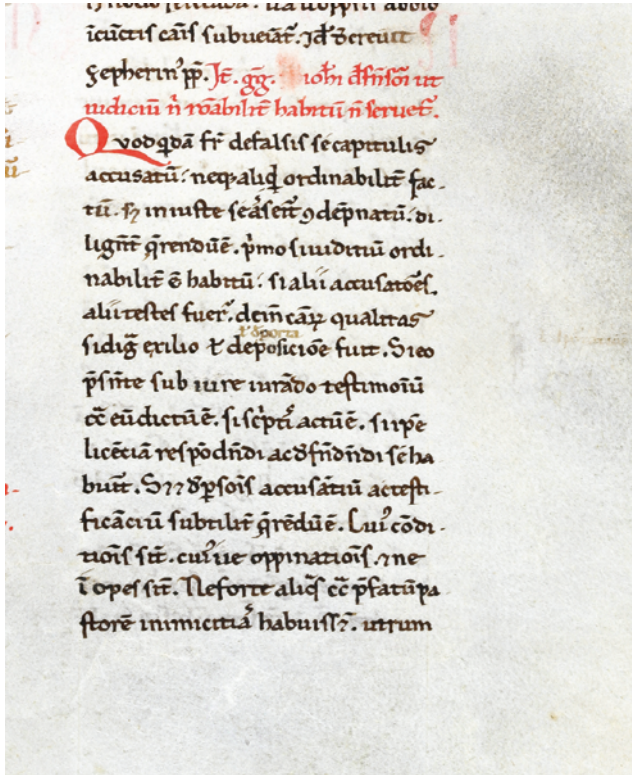 icūctis cāīs subueiat᷑. Jđ đcreuit
Zepherin᷒ pp̄. Jt̄. gḡ. ioh̄i dfn̄soī ut
iudiciū n̄ rōabilit̄ habitū n̄ seruet᷑.
Quod qdā fr̄ defalsis se capitulis
accusatū: neq; aliqđ ordinabilit̄ fac-
tū. sꝫ iniuste se asserit ꝯdēpnatū. di-
lignt̄ q̄rendū ē. p̄mo si iuditiū ordi-
nabilit̄ ē habitū: si alii accusatōēs.
alii testes fuer̄. dein cāꝝ qualitas
si digā exilio ł depositiōe fuit. Si eo
p̄snt̄e sub iure iurādo testimoīū
cc̄ eū dictū ē. si sc̄pti actū ē. si ip̄e
licētiā respōdn̄di ac dfn̄dn̄di sē ha
buit. Sꝫ ⁊ đ ꝑsoīs accusātiū ac testi-
ficāciū subtilit̄ q̄rēdū ē. Cui᷒ cōdi-
tioīs sīt. cui᷒ue oppinatioīs. ⁊ ne
īopes sīt. Ne forte aliq̄s cc̄ p̄fatū pa
storē inimicitiā habuissꝫ. utrum